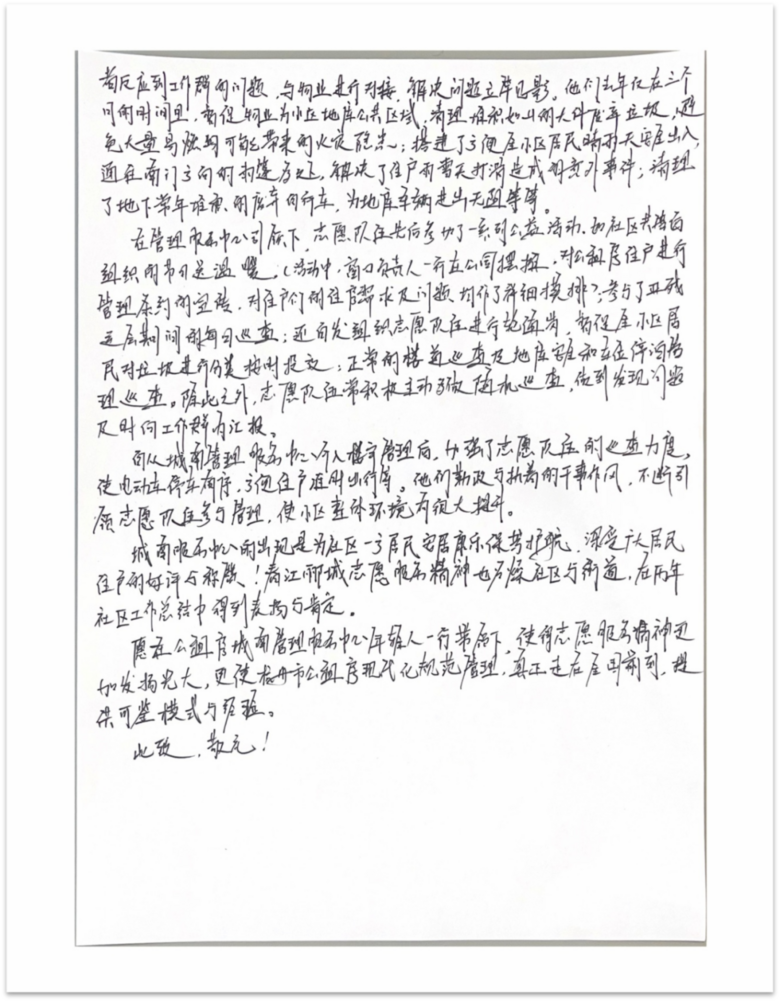 者反应到工作群的问题，与物业进行对接，解决问题立竿见影。他们去年仅在三个
月的时间里，督促物业为小区地库公共区域，清理堆积如山的大件废弃垃圾，避
免大量易燃物可能带来的火灾隐患；搭建了方便居小区居民晴雨天安居出入，
通往南门方向的，解决了住户雨雪天打滑造成的意外事件；清理
了地下常年堆积的废弃自行车，为地库车辆进出无阻等等。
在管理服务中心引领下，志愿队伍先后参加了一系列公益活动，如社区共治自
组织的节日送温暖，（活动中，窗口负责人一行在公园摆摊，对公租房住户进行
管理条例的宣传，对住户们的住房需求及问题均作了详细摸排）；参与了亚残
运会期间的每日巡查；还自发组织志愿队伍进行站岗，督促居小区居
民对垃圾进行分类按时投放；正常的楼道巡查及地库安全和车位停泊管
理巡查。除此之外，志愿队伍常积极主动随机巡查，做到发现问题
及时向工作群内汇报。
自从城南管理服务中心介入稳定管理后，加强了志愿队伍的巡查力度，
使电动车停车有序，方便住户准时出行等。他们勤政与执着的干事作风，不断引
领志愿队伍参与管理，使小区整体环境有很大提升。
城南服务中心的出现是为社区一方居民安居康乐保驾护航，深受广大居民
住户的好评与称赞！春江郦城志愿服务精神也社区与街道，在两年
社区工作总结中得到表扬与肯定。
愿在公租房城南管理服务中心年轻人一行带领下，使得志愿服务精神更
加发扬光大，更使杭州市公租房现代化规范管理，真正走在全国前列，提
供可鉴模式与经验。
此致，敬礼！